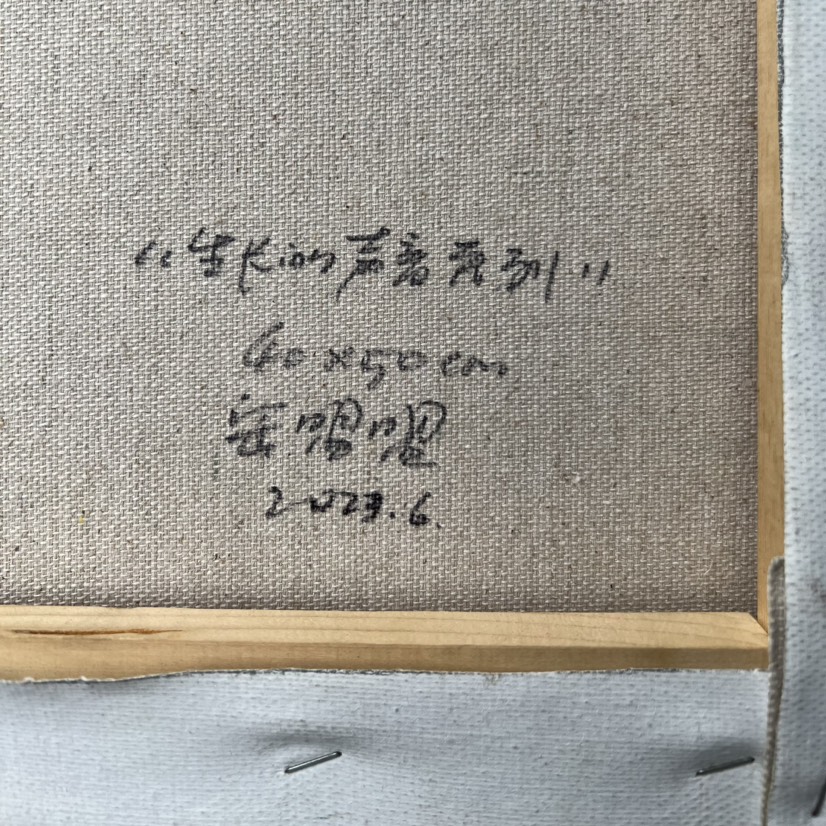 “生长的声音系列”
40×50cm
2023.6.